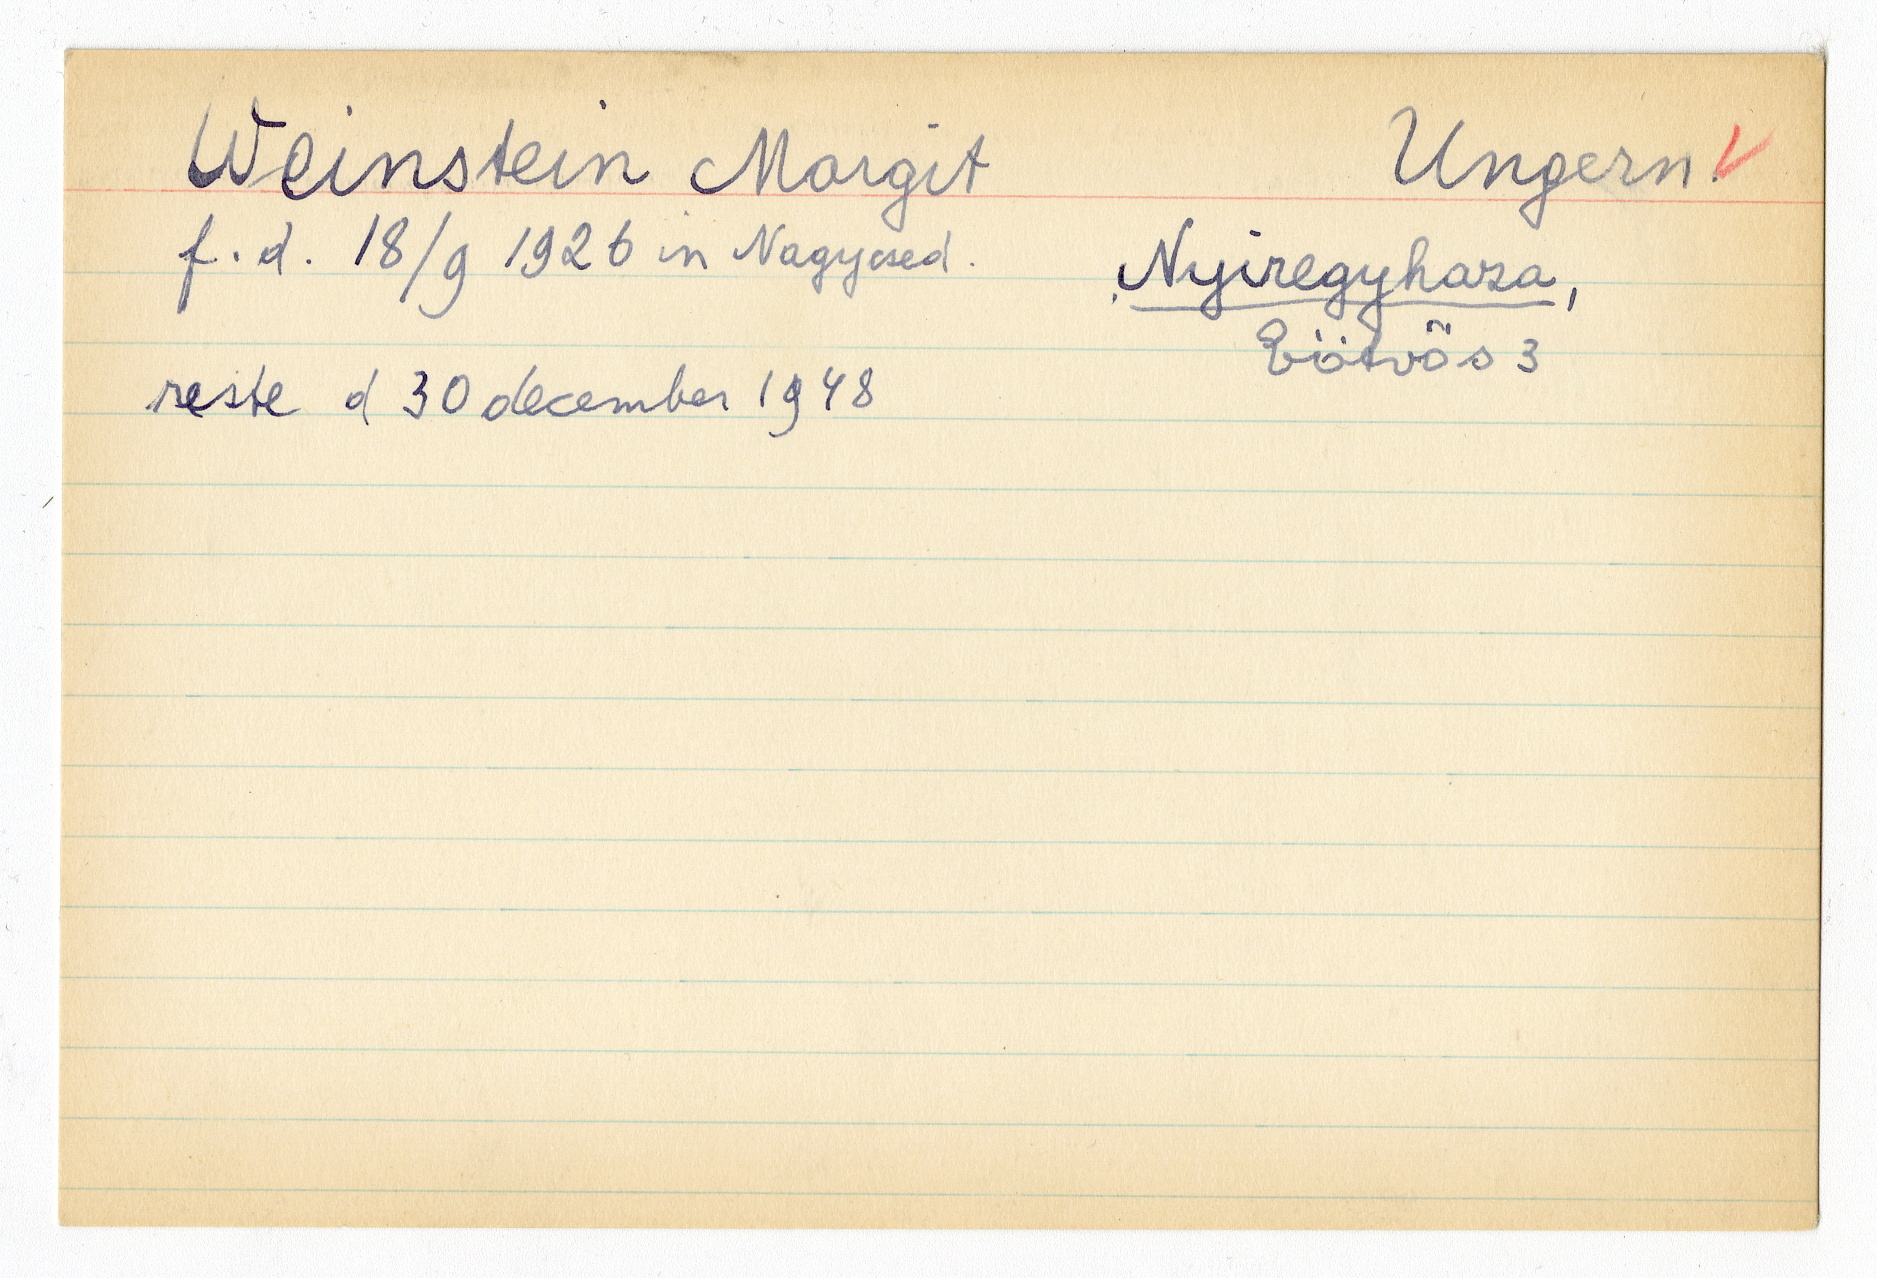 Weinstein Margit
Ungern.
f. d. 18/9 1926 in Nagyecsed.
Nyiregyhaza,
Eötvös 3
reste d 30 december 1948